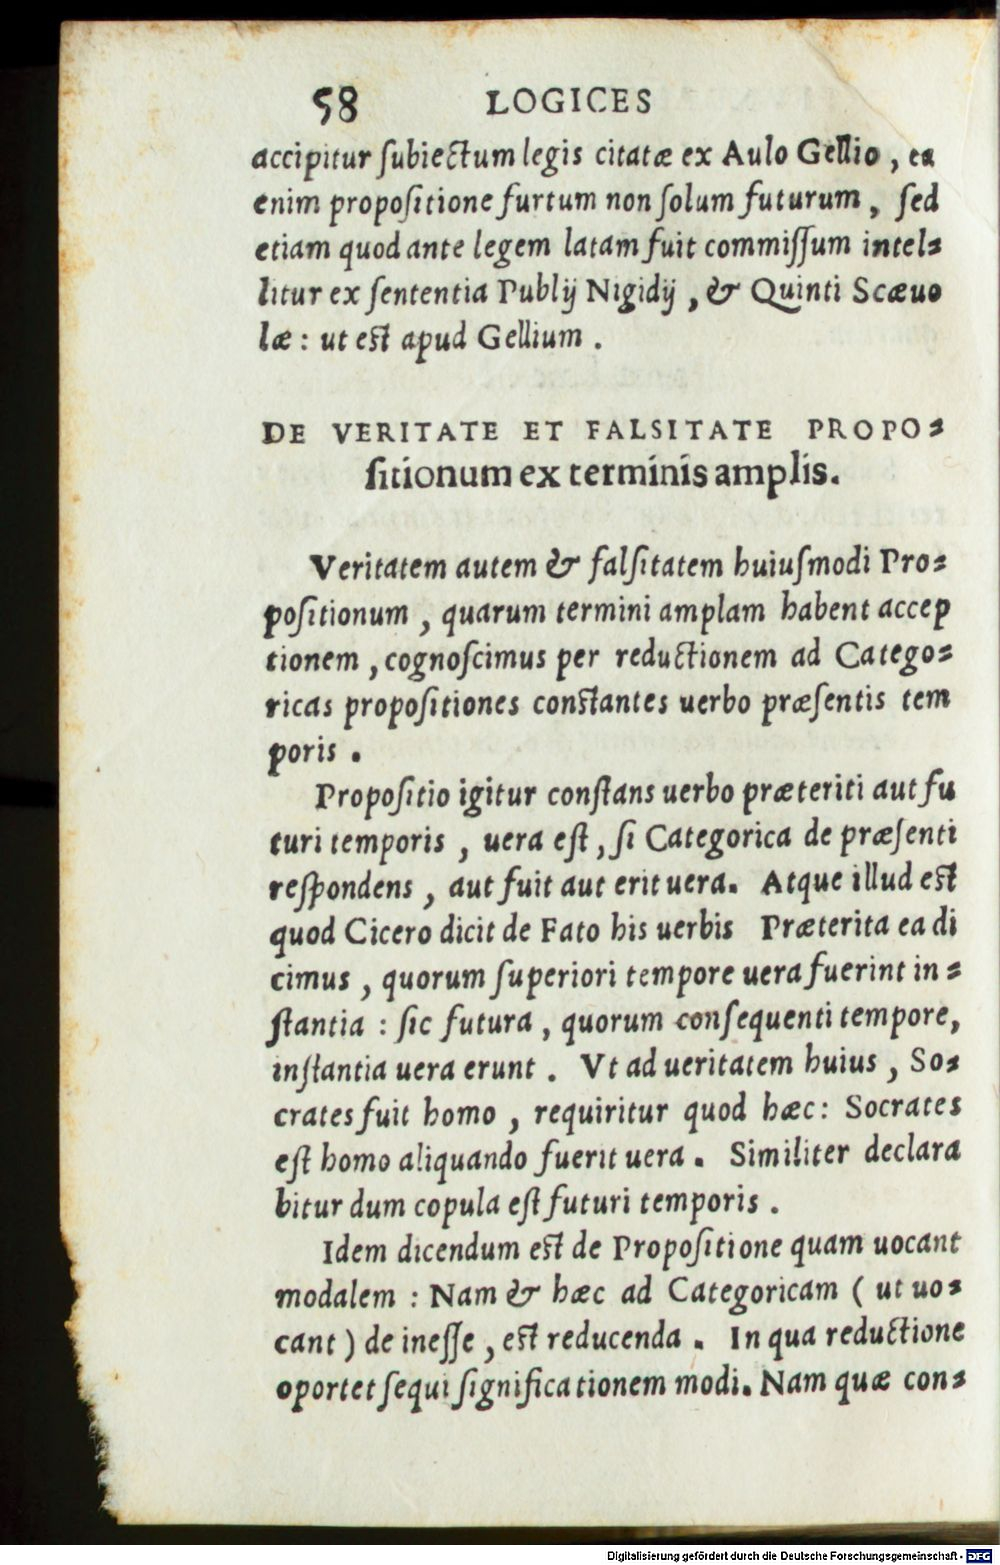 58 LOGICES
accipitur ſubiectum legis citatæ ex Aulo Gellio, ea
enim propoſitione furtum non ſolum futurum, ſed
etiam quod ante legem latam fuit commiſſum intel⸗
litur ex ſententia Publij Nigidij, & Quinti Scæuo
læ: ut eſt apud Gellium.
DE VERITATE ET FALSITATE PROPO⸗
ſitionum ex terminis amplis.
Veritatem autem & falſitatem huiuſmodi Pro⸗
poſitionum, quarum termini amplam habent accep
tionem, cognoſcimus per reductionem ad Catego⸗
ricas propoſitiones conſtantes uerbo præſentis tem
poris.
Propoſitio igitur conſtans uerbo præteriti aut fu
turi temporis, uera eſt, ſi Categorica de præſenti
reſpondens, aut fuit aut erit uera. Atque illud eſt
quod Cicero dicit de Fato his uerbis Præterita ea di
cimus, quorum ſuperiori tempore uera fuerint in⸗
ſtantia: ſic futura, quorum conſequenti tempore,
inſtantia uera erunt. Vt ad ueritatem huius, So⸗
crates fuit homo, requiritur quod hæc: Socrates
eſt homo aliquando fuerit uera. Similiter declara
bitur dum copula eſt futuri temporis.
Idem dicendum eſt de Propoſitione quam uocant
modalem: Nam & hæc ad Categoricam (ut uo⸗
cant) de ineſſe, eſt reducenda. In qua reductione
oportet ſequi ſignificationem modi. Nam quæ con⸗
Digitalisierung gefördert durch die Deutsche Forschungsgemeinschaft - DFG